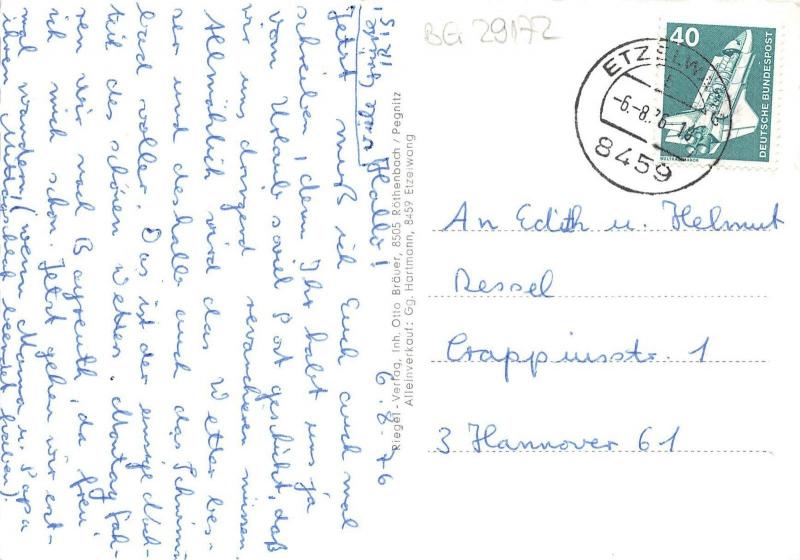 BG 29172
40
DEUTSCHE BUNDESPOST
WELTRAUMLABOR
ETZELW
-6.-8.76-16
8459
6.8.76
Hallo!
Jetzt muß ich Euch auch mal
schreiben, denn Ihr habt uns ja
vom Urlaub soviel Post geschickt, daß
wir uns dringend revanchieren müssen.
Allmählich wird das Wetter bes-
ser und deshalb auch das Schwimm-
bad voller. Das ist der einzige Nach-
teil des schönen Wetters. Montag fah-
ren wir nach Bayreuth, da freu'
ich mich schon. Jetzt gehen wir erst-
mal wandern, (wenn Mama u. Papa
ihren Mittagsschlaf beendet haben).
Riegel-Verlag, Inh. Otto Bräuer, 8505 Röthenbach / Pegnitz
Alleinverkauf: Gg. Hartmann, 8459 Etzelwang
An Edith u. Helmut
Dessel
Crappiusstr. 1
3 Hannover 61